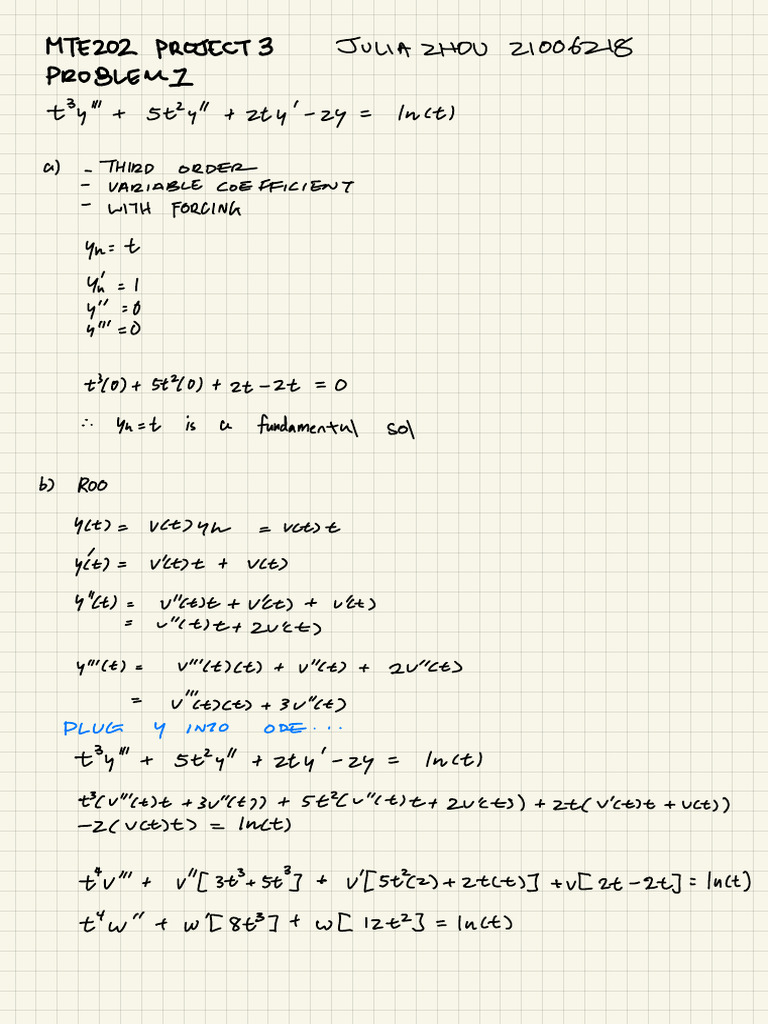 MTE202 PROJECT 3 JULIA ZHOU 21006218
PROBLEM 1
t³y''' + 5t²y'' + 2ty' - 2y = ln(t)
a) - THIRD ORDER
- VARIABLE COEFFICIENT
- WITH FORCING
yₕ = t
yₕ' = 1
y'' = 0
y''' = 0
t³(0) + 5t²(0) + 2t - 2t = 0
∴ yₕ = t is a fundamental sol
b) ROO
y(t) = v(t)yₕ = v(t)t
y'(t) = v'(t)t + v(t)
y''(t) = v''(t)t + v'(t) + v'(t)
= v''(t)t + 2v'(t)
y'''(t) = v'''(t)(t) + v''(t) + 2v''(t)
= v'''(t)(t) + 3v''(t)
PLUG Y INTO ODE...
t³y''' + 5t²y'' + 2ty' - 2y = ln(t)
t³(v'''(t)t + 3v''(t)) + 5t²(v''(t)t + 2v'(t)) + 2t(v'(t)t + v(t))
-2(v(t)t) = ln(t)
t⁴v''' + v''[3t³ + 5t³] + v'[5t²(2) + 2t(t)] + v[2t - 2t] = ln(t)
t⁴w'' + w'[8t³] + w[12t²] = ln(t)